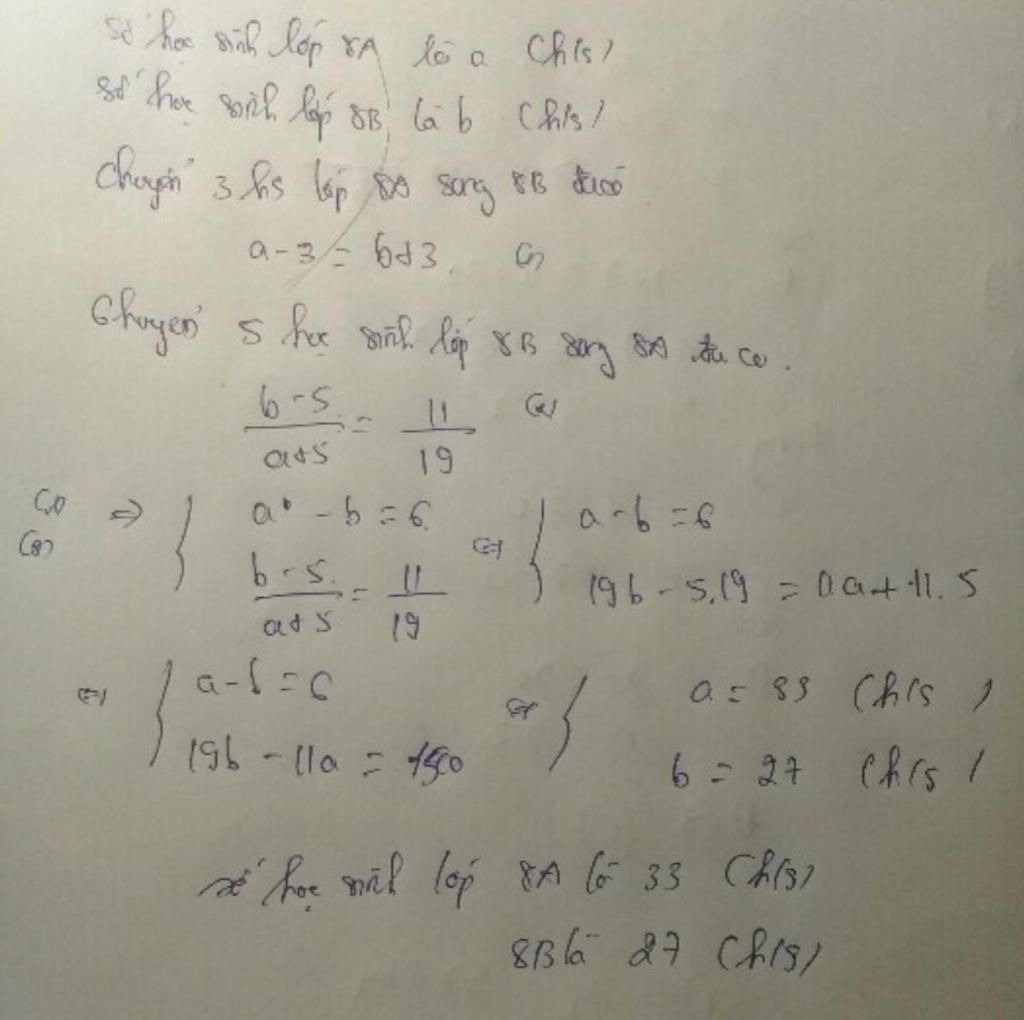 Số học sinh lớp 8A là a (h/s)
Số học sinh lớp 8B là b (h/s)
Chuyển 3 hs lớp 8A sang 8B ta có
a - 3 = b + 3. (1)
Chuyển 5 học sinh lớp 8B sang 8A ta có.
b - 5 / a + 5 = 11 / 19 (2)
(1) (2) => { a - b = 6 <=> { a - b = 6
b - 5 / a + 5 = 11 / 19 19b - 5.19 = 11a + 11.5
<=> { a - b = 6 <=> { a = 33 (h/s)
19b - 11a = 150 b = 27 (h/s)
số học sinh lớp 8A là 33 (h/s)
8B là 27 (h/s)